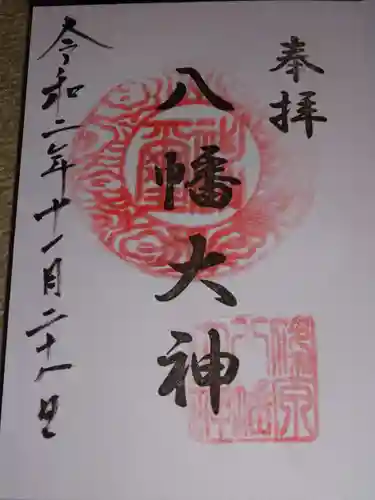 奉拝
八幡大神
令和二年十一月二十八日